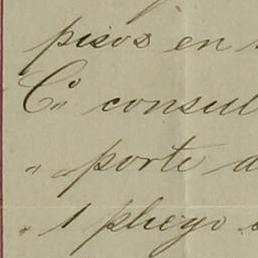 pisos en
Co. consul
" porte d
" 1 pliego